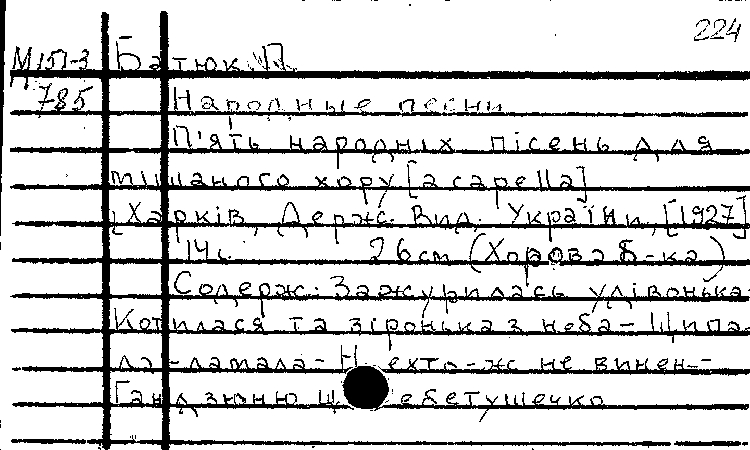 224
М151-3 Батюк П.
785 Народные песни
П'ять народніх пісень для
мішаного хору [a capella]
Харків, Держ. Вид. України, [1927]
14 с. 26 см (Хорова Б-ка)
Содерж: Зажурилась удівонька-
Котилася та зіронька з неба - Щипа-
ла-ламала - Нехто-ж не винен -
Гандзюню щебетушечко